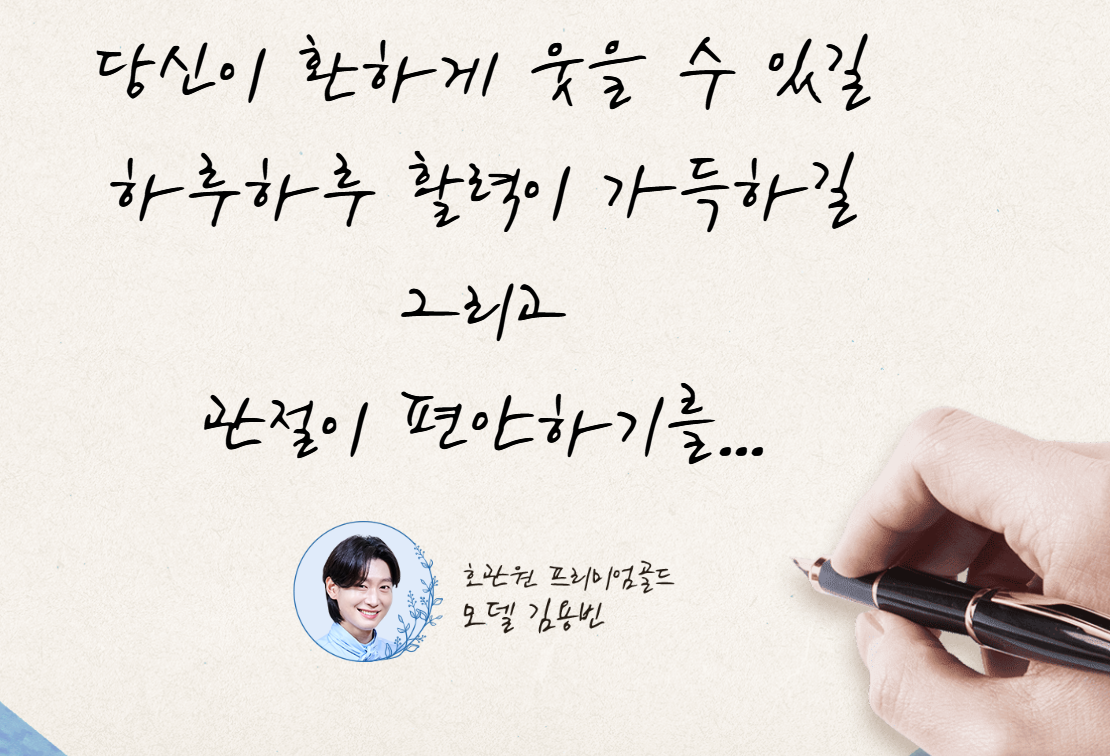 당신이 환하게 웃을 수 있길
하루하루 활력이 가득하길
그리고
관절이 편안하기를...
호관원 프리미엄골드
모델 김용빈